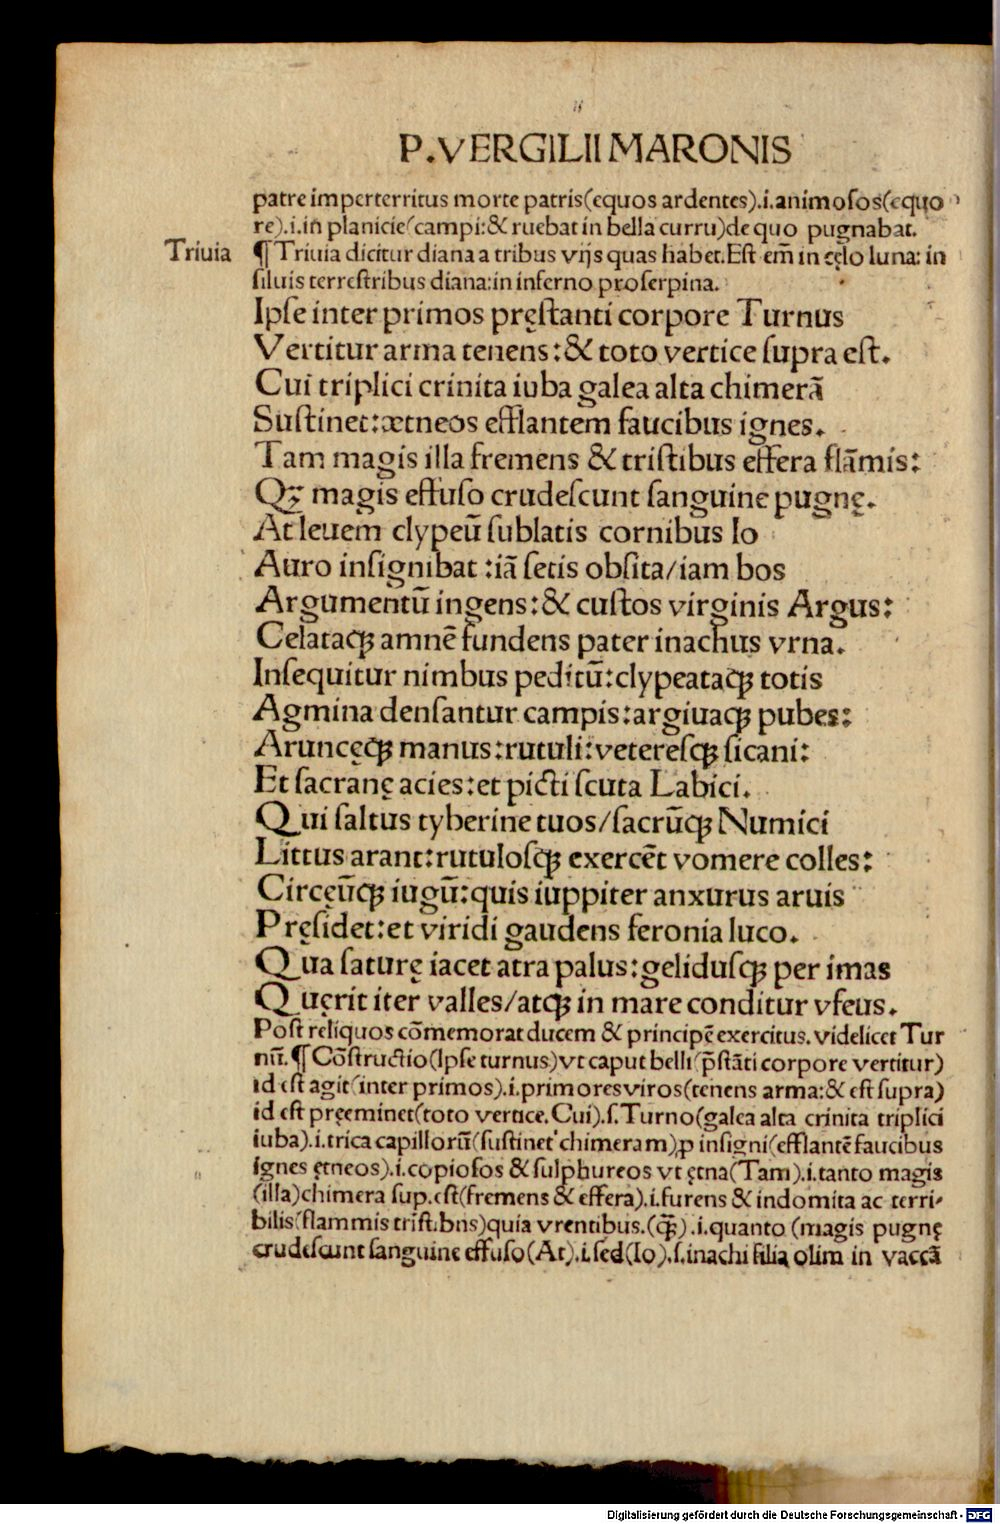 P.VERGILII MARONIS
patre imperterritus morte patris(equos ardentes).i.animosos(equo
re).i.in planicie(campi:& ruebat in bella curru)de quo pugnabat.
Triuia
¶ Triuia dicitur diana a tribus vijs quas habet.Est em̄ in cęlo luna: in
siluis terrestribus diana:in inferno proserpina.
Ipse inter primos pręstanti corpore Turnus
Vertitur arma tenens:& toto vertice supra est.
Cui triplici crinita iuba galea alta chimerā
Sustinet:ætneos efflantem faucibus ignes.
Tam magis illa fremens & tristibus effera flāmis:
Qꝫ magis effuso crudescunt sanguine pugnę.
At leuem clypeū sublatis cornibus Io
Auro insignibat :iā setis obsita/iam bos
Argumentū ingens:& custos virginis Argus:
Celataqꝫ amnē fundens pater inachus vrna.
Insequitur nimbus peditū:clypeataqꝫ totis
Agmina densantur campis:argiuaqꝫ pubes:
Aruncęqꝫ manus:rutuli:veteresqꝫ sicani:
Et sacranę acies:et picti scuta Labici.
Qui saltus tyberine tuos/sacrūqꝫ Numici
Littus arant:rutulosqꝫ exercēt vomere colles:
Circęūqꝫ iugū:quis iuppiter anxurus aruis
Pręsidet:et viridi gaudens feronia luco.
Qua saturę iacet atra palus:gelidusqꝫ per imas
Quęrit iter valles/atqꝫ in mare conditur vfeus.
Post reliquos cōmemorat ducem & principē exercitus. videlicet Tur
nū.¶ Cōstructio(Ipse turnus)vt caput belli(p̄stāti corpore vertitur)
id est agit(inter primos).i.primores viros(tenens arma:& est supra)
id est pręeminet(toto vertice.Cui).s.Turno(galea alta crinita triplici
iuba).i.trica capillorū(sustinet chimeram)ꝓ insigni(efflantē faucibus
ignes ętneos).i.copiosos & sulphureos vt ętna(Tam).i.tanto magis
(illa)chimera sup.est(fremens & effera).i.furens & indomita ac terri-
bilis(flammis tristibns)quia vrentibus.(qꝫ̄).i.quanto (magis pugnę
crudescunt sanguine effuso(At).i.sed(Io).s.inachi filia olim in vaccā
Digitalisierung gefördert durch die Deutsche Forschungsgemeinschaft - DFG